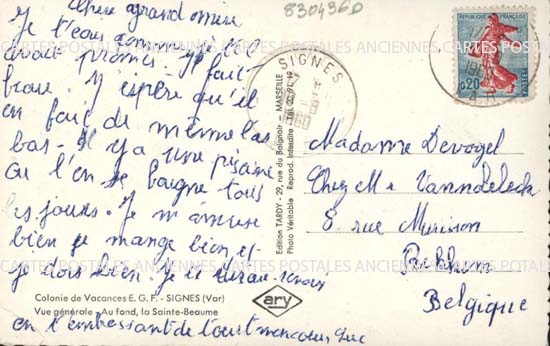 Chère grand mère
Je t'écris comme je te l'
avais promis. Il fait
beau. J'espère qu'il
en fait de même là
bas. Il y a une piscine
où l'on se baigne tous
les jours. Je m'amuse
bien je mange bien et
je dors bien. Je te
en t'embrassant de tout mon coeur
Colonie de Vacances E. G. F. - SIGNES (Var)
Vue générale - Au fond, la Sainte-Baume
Edition TARDY - 29, rue du Baignoir - MARSEILLE
Photo Véritable Reprod. Interdite
ary
8304360
SIGNES
REPUBLIQUE FRANÇAISE
0,20
POSTES
Madame Devogel
Chez Mr Vanndeleck
8 rue
Belgique
CARTES POSTALES ANCIENNES